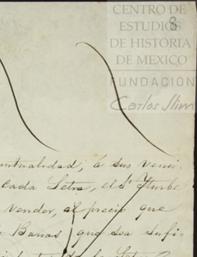 CENTRO DE
ESTUDIOS
DE HISTORIA
DE MEXICO
FUNDACION
Carlos Slim
8
untualidad, á sus venci
cada Letra, el Sr. Iturbe
vender, al precio que
Barras, que sea sufi-